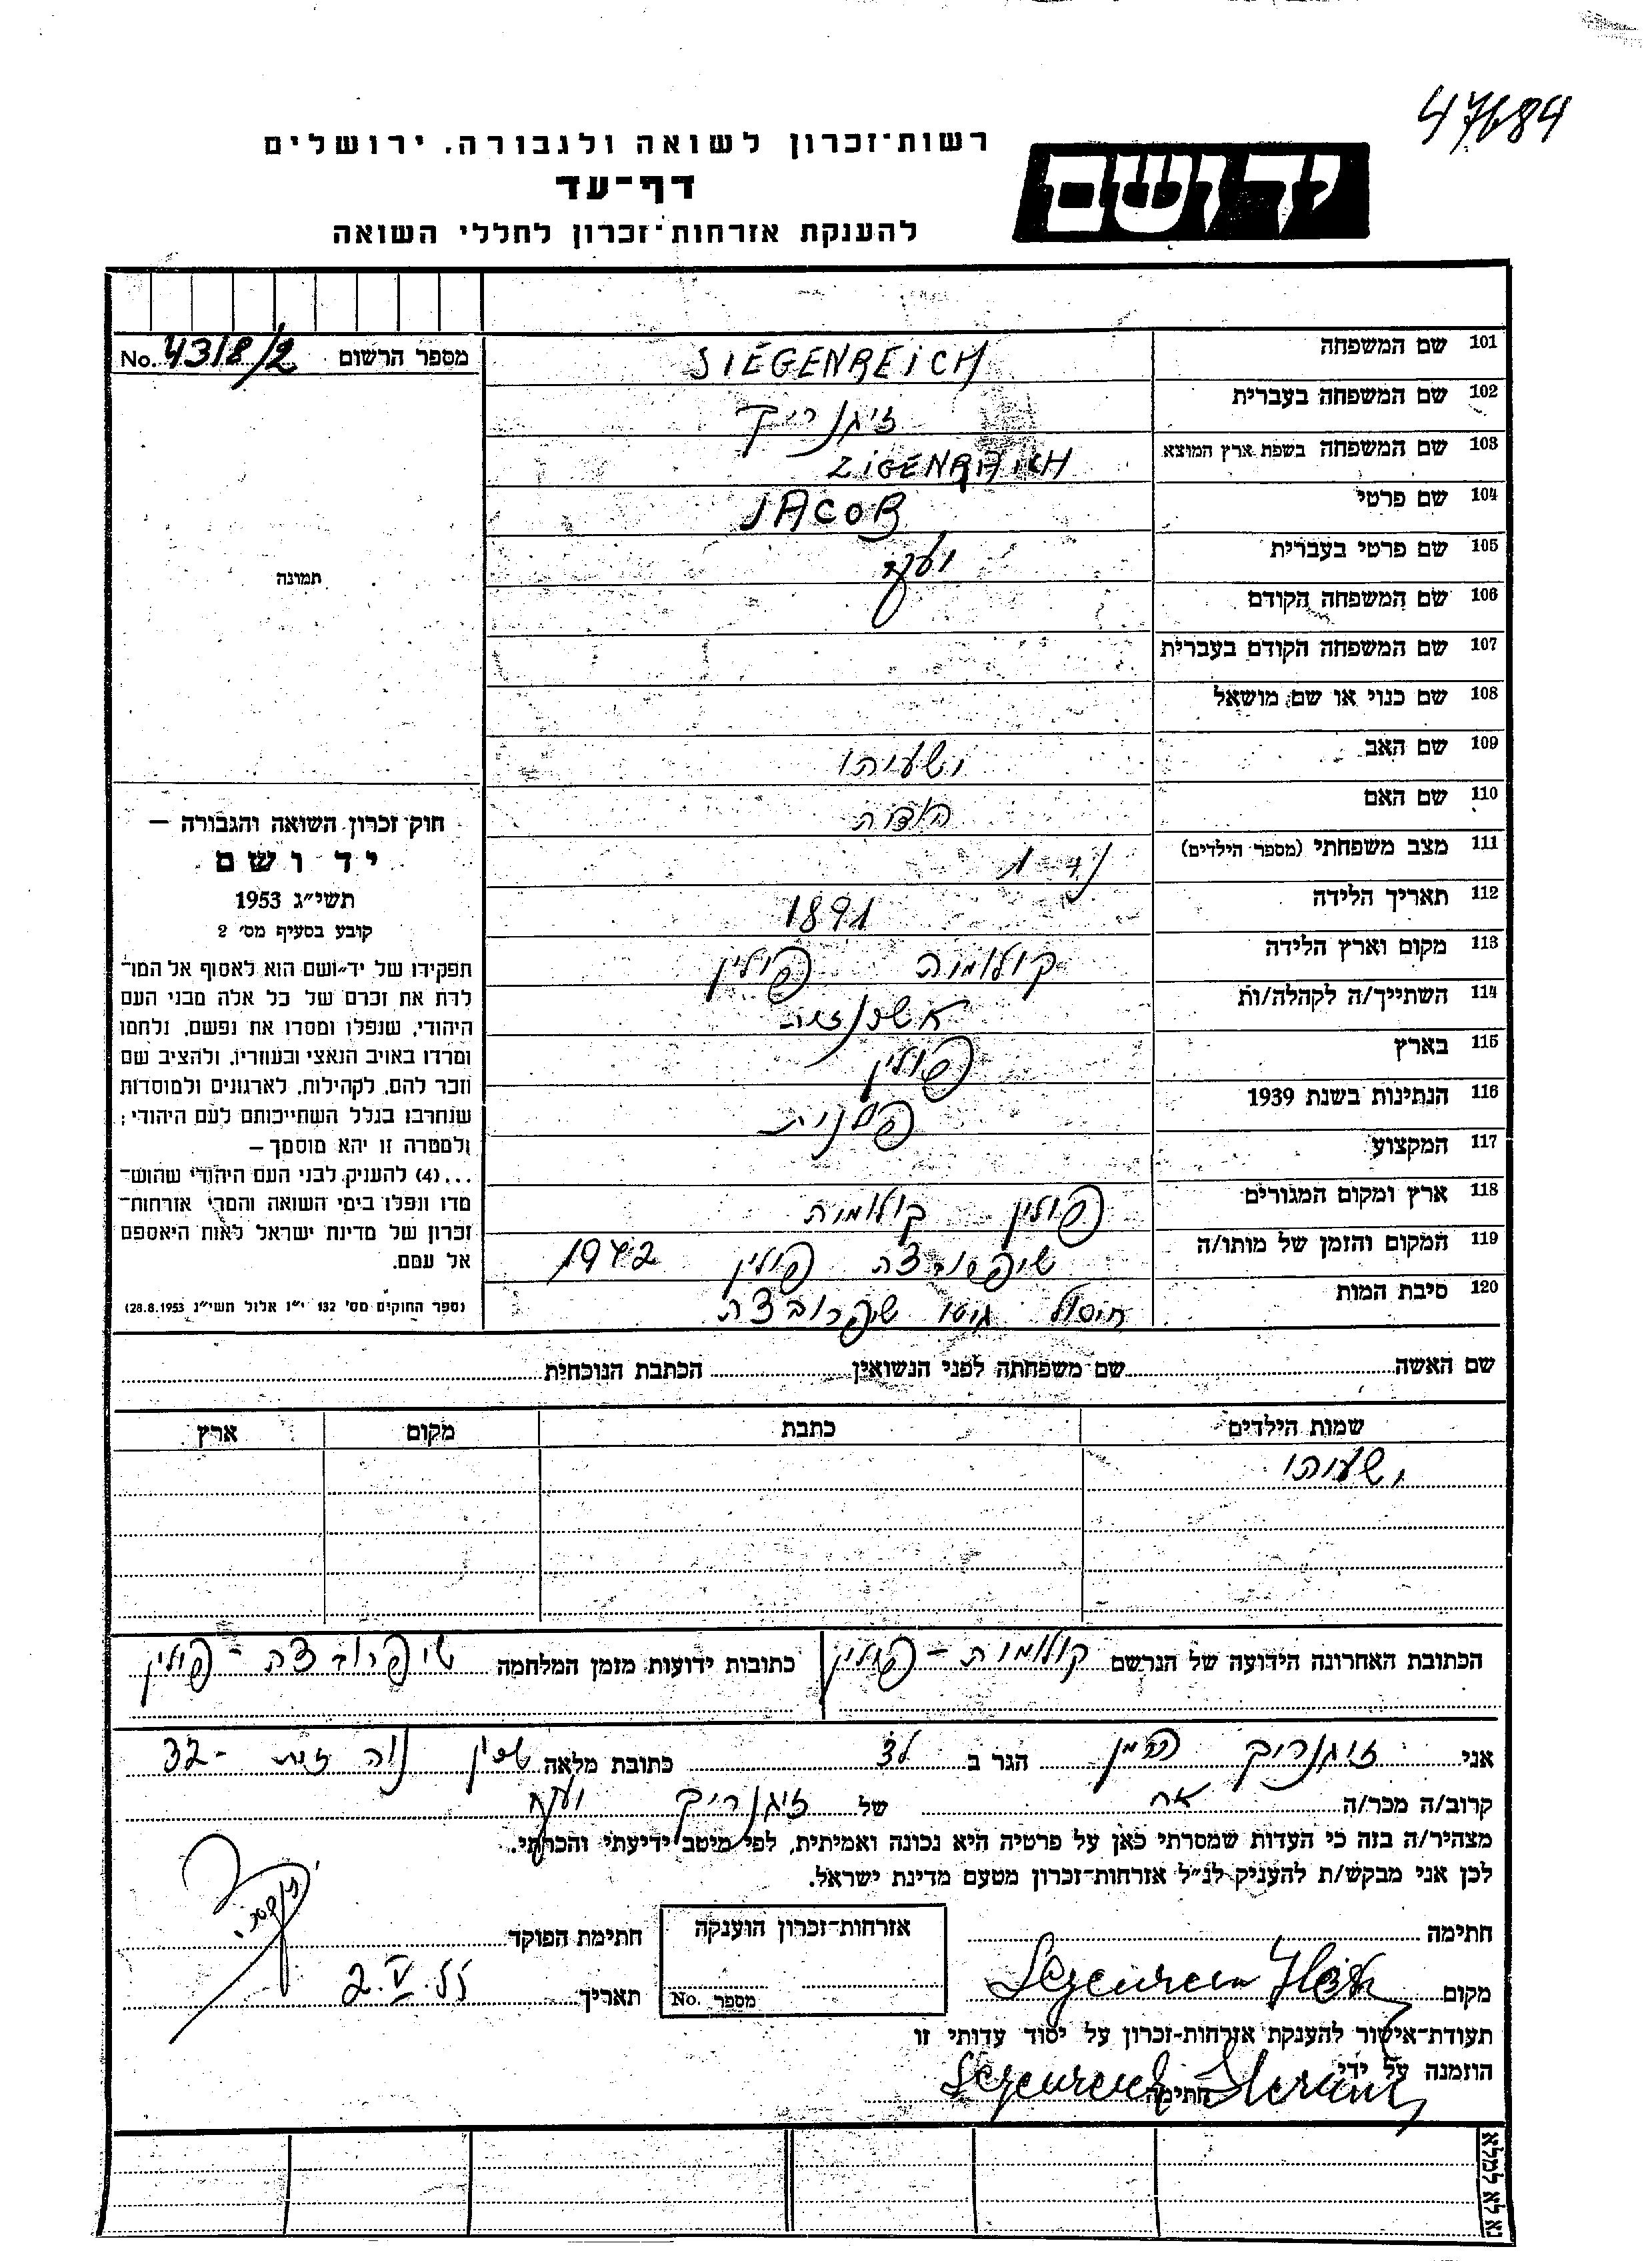 47684
רשות־זכרון לשואה ולגבורה. ירושלים
דף־עד
להענקת אזרחות־זכרון לחללי השואה
יד ושם
No. 4318/2 מספר הרשום
תמונה
101 שם המשפחה SIEGENREICH
102 שם המשפחה בעברית זיגנריך
103 שם המשפחה בשפת ארץ המוצא ZIGENRAICH
104 שם פרטי JACOB
105 שם פרטי בעברית יעקב
106 שם המשפחה הקודם
107 שם המשפחה הקודם בעברית
108 שם כנוי או שם מושאל
109 שם האב ישעיהו
110 שם האם
111 מצב משפחתי (מספר הילדים)
112 תאריך הלידה 1891
113 מקום וארץ הלידה קולומיה פולין
114 השתייך/ה לקהלה/ות אשכנזית
115 בארץ פולין
116 הנתינות בשנת 1939 פולנית
117 המקצוע
118 ארץ ומקום המגורים פולין קולומיה
119 המקום והזמן של מותו/ה שיפרובצה פולין 1942
120 סיבת המות חיסול גיטו שיפרובצה
חוק זכרון השואה והגבורה —
יד ושם
תשי״ג 1953
קובע בסעיף מס׳ 2
תפקידו של יד־ושם הוא לאסוף אל המו־
לדת את זכרם של כל אלה מבני העם
היהודי, שנפלו ומסרו את נפשם, נלחמו
ומרדו באויב הנאצי ובעוזריו, ולהציב שם
וזכר להם, לקהילות, לארגונים ולמוסדות
שנחרבו בגלל השתייכותם לעם היהודי;
ולמטרה זו יהא מוסמך —
...(4) להעניק לבני העם היהודי שהוש־
מדו ונפלו בימי השואה והמרי אזרחות־
זכרון של מדינת ישראל לאות היאספם
אל עמם.
(ספר החוקים מס׳ 132 י״ז אלול תשי״ג 28.8.1953)
שם האשה שם משפחתה לפני הנשואין הכתבת הנוכחית
שמות הילדים כתבת מקום ארץ
ישעיהו
הכתובת האחרונה הידועה של הנרשם קולומיה - פולין כתובות ידועות מזמן המלחמה שיפרובצה - פולין
אני זיגנריך הרמן הגר ב לוד כתובת מלאה שכון נוה זית - 32
קרוב/ה מכר/ה אח של זיגנריך יעקב
מצהיר/ה בזה כי העדות שמסרתי כאן על פרטיה היא נכונה ואמיתית, לפי מיטב ידיעתי והכרתי.
לכן אני מבקש/ת להעניק לנ״ל אזרחות־זכרון מטעם מדינת ישראל.
חתימה אזרחות־זכרון הוענקה חתימת הפוקד
מקום No. מספר תאריך 2.V.55
תעודת־אישור להענקת אזרחות־זכרון על יסוד עדותי זו
הוזמנה על ידי
חתימה
נא לא למלא